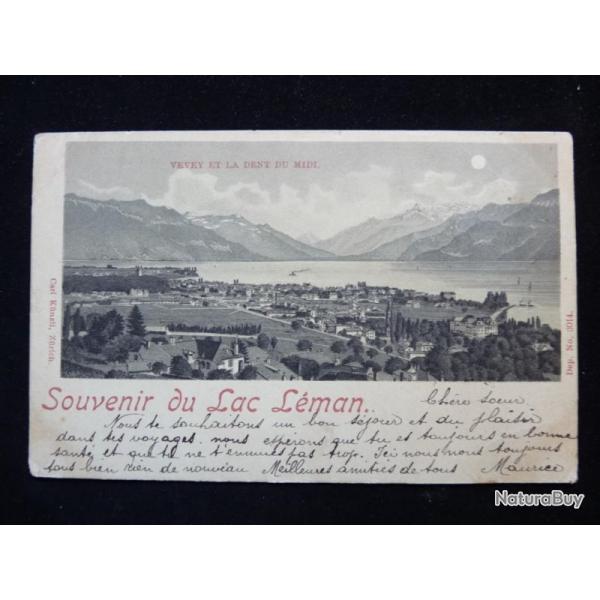 VEVEY ET LA DENT DU MIDI.
Carl Künzli, Zürich.
Dep. No. 3014.
Souvenir du Lac Léman.
Chère soeur,
Nous te souhaitons un bon séjour et du plaisir
dans tes voyages. nous esperons que tu es toujours en bonne
santé et que tu ne t'ennuies pas trop. Ici nous nous toujours
tous bien rien de nouveau Meilleures amitiés de tous Maurice
NaturaBuy